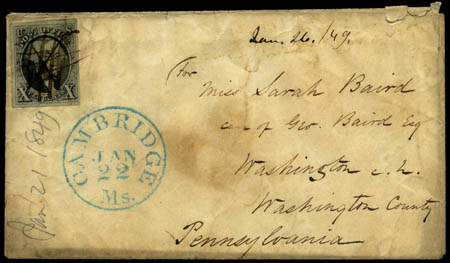 POST OFFICE
X X
Jan. 26. /49.
For
Miss Sarah Baird
care of Geo. Baird Esq
Washington c. h.
Washington County
Pennsylvania
CAMBRIDGE
JAN
22
Ms.
Jan 21 1849